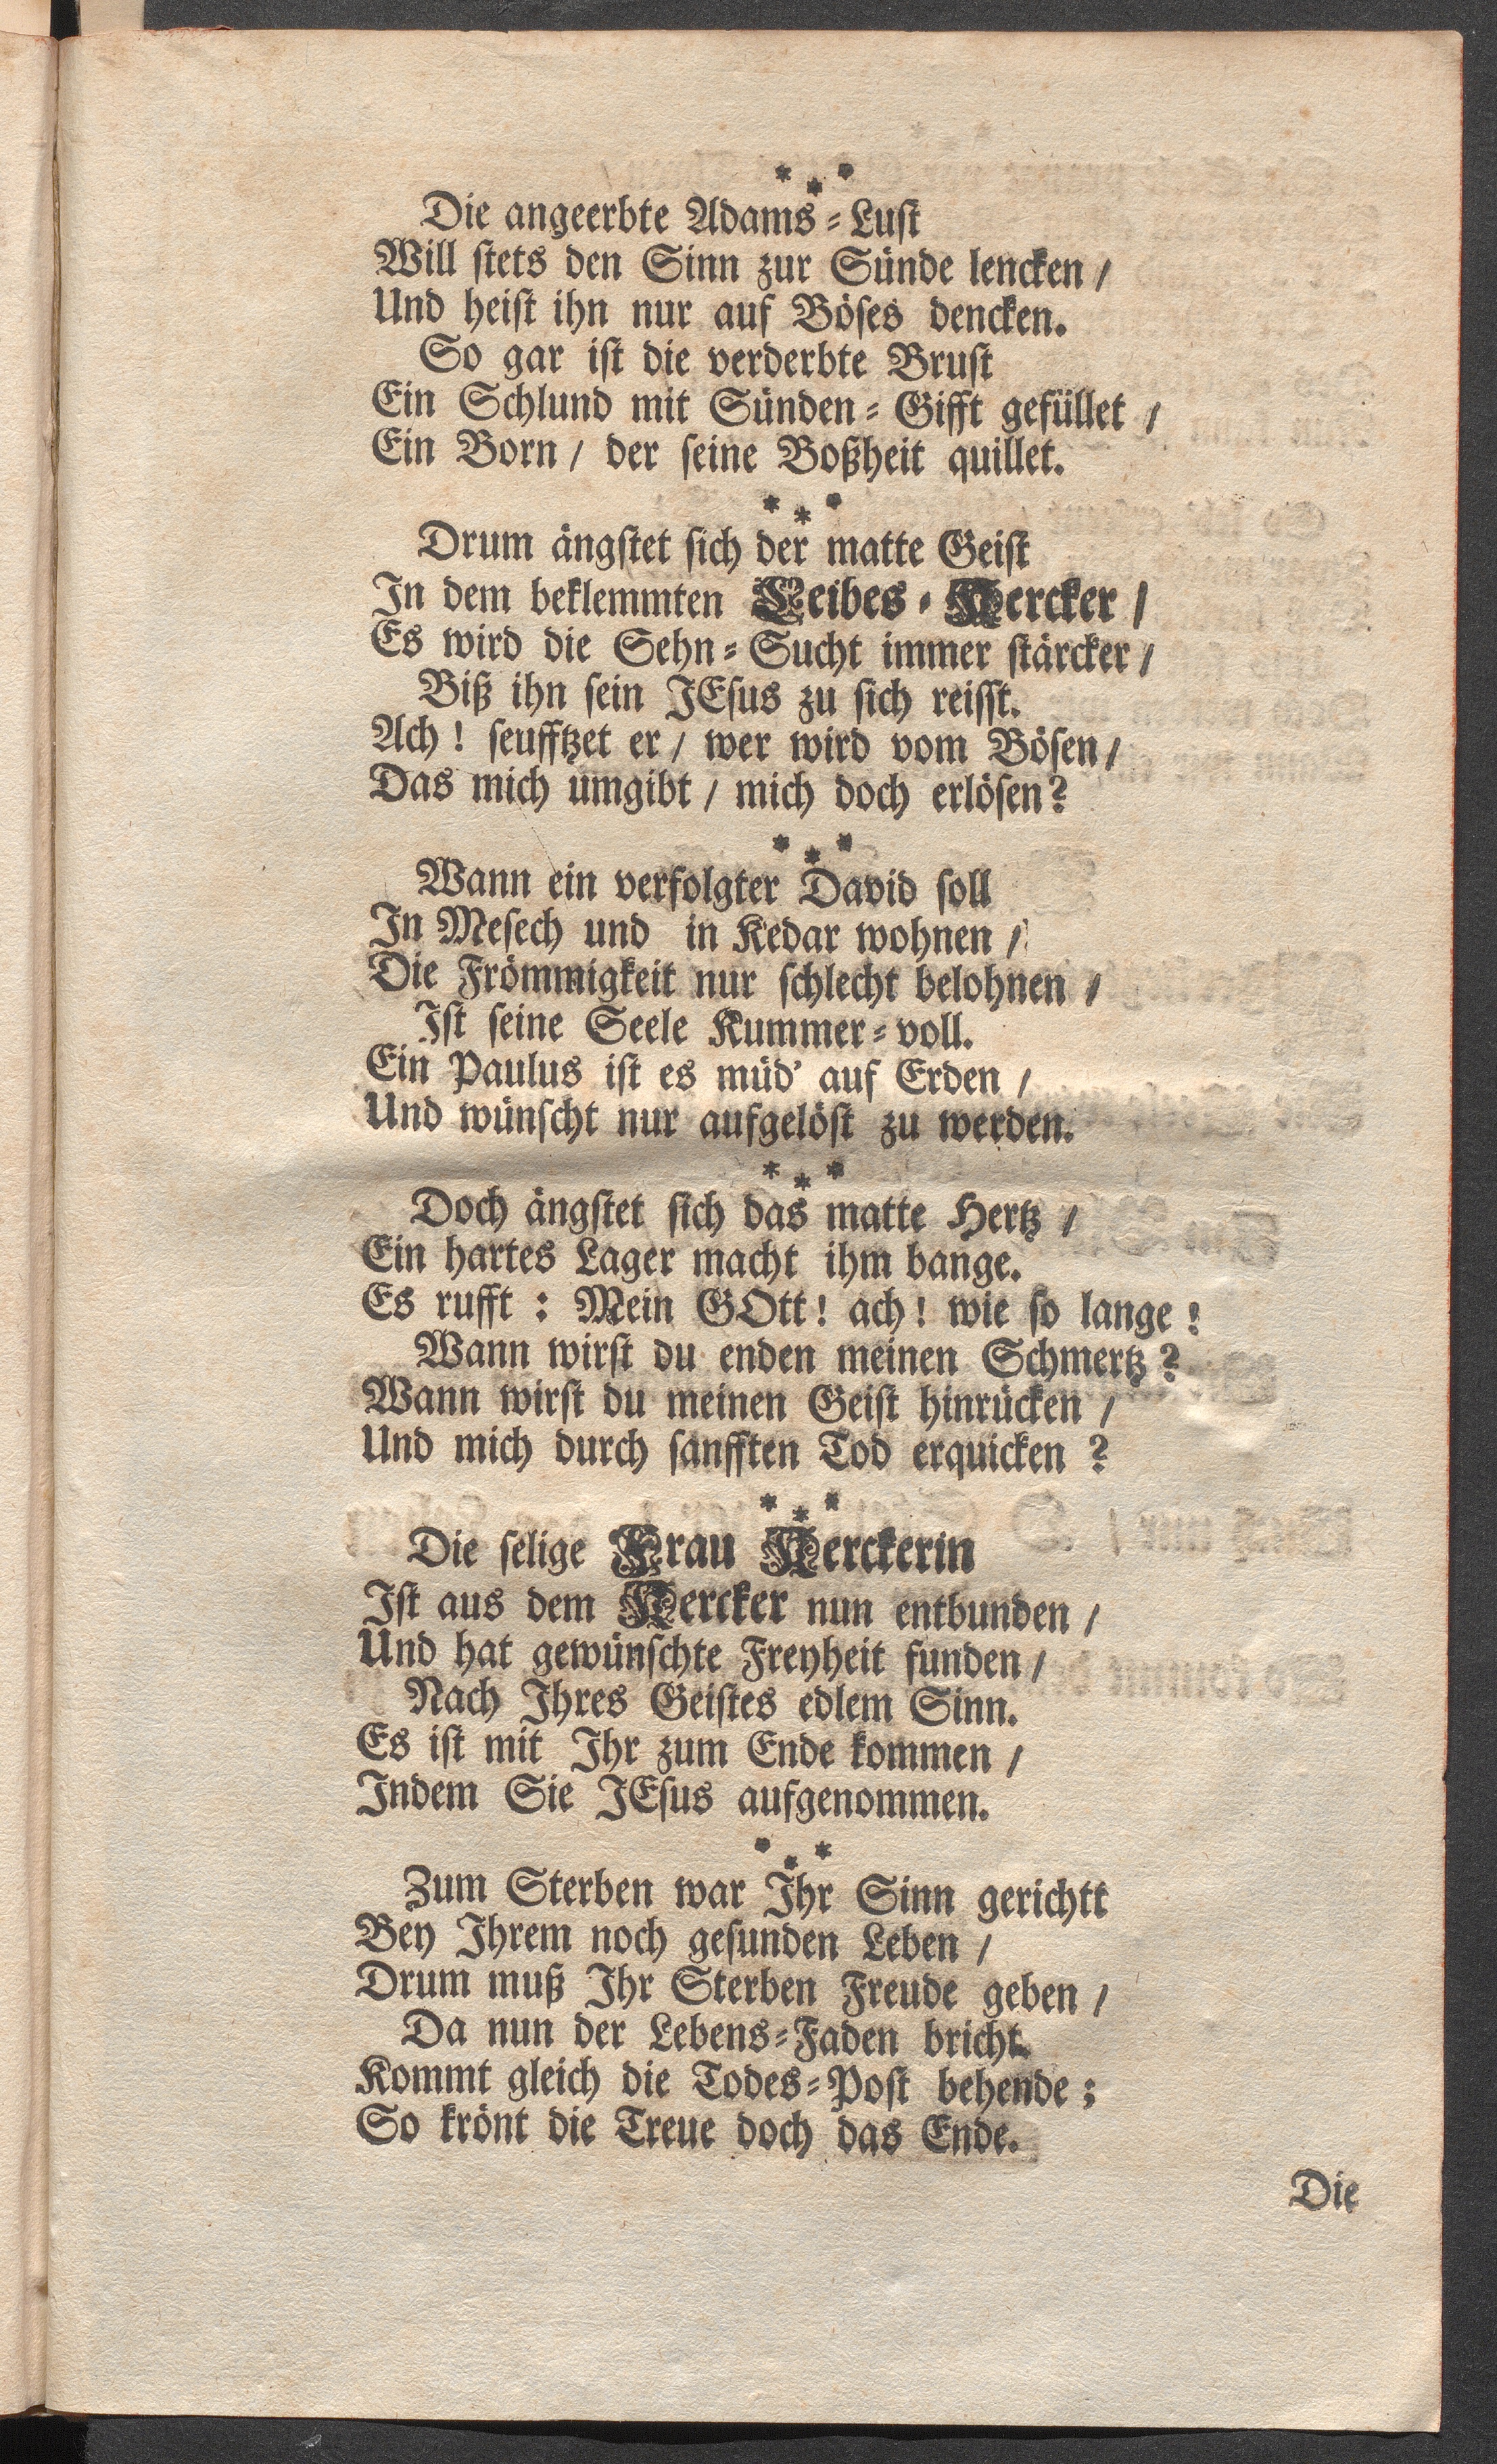 * * *
Die angeerbte Adams-Lust
Will stets den Sinn zur Sünde lencken /
Und heist ihn nur auf Böses dencken.
So gar ist die verderbte Brust
Ein Schlund mit Sünden-Gifft gefüllet /
Ein Born / der seine Boßheit quillet.
* * *
Drum ängstet sich der matte Geist
In dem beklemmten Leibes-Kercker /
Es wird die Sehn-Sucht immer stärcker /
Biß ihn sein JEsus zu sich reisst.
Ach! seufftzet er / wer wird vom Bösen /
Das mich umgibt / mich doch erlösen?
* * *
Wann ein verfolgter David soll
In Mesech und in Kedar wohnen /
Die Frömmigkeit nur schlecht belohnen /
Ist seine Seele Kummer-voll.
Ein Paulus ist es müd' auf Erden /
Und wünscht nur aufgelöst zu werden.
* * *
Doch ängstet sich das matte Hertz /
Ein hartes Lager macht ihm bange.
Es rufft: Mein GOtt! ach! wie so lange!
Wann wirst du enden meinen Schmertz?
Wann wirst du meinen Geist hinrücken /
Und mich durch sanfften Tod erquicken?
* * *
Die selige Frau Kerckerin
Ist aus dem Kercker nun entbunden /
Und hat gewünschte Freyheit funden /
Nach Ihres Geistes edlem Sinn.
Es ist mit Ihr zum Ende kommen /
Indem Sie JEsus aufgenommen.
* * *
Zum Sterben war Ihr Sinn gerichtt
Bey Ihrem noch gesunden Leben /
Drum muß Ihr Sterben Freude geben /
Da nun der Lebens-Faden bricht.
Kommt gleich die Todes-Post behende;
So krönt die Treue doch das Ende.
Die